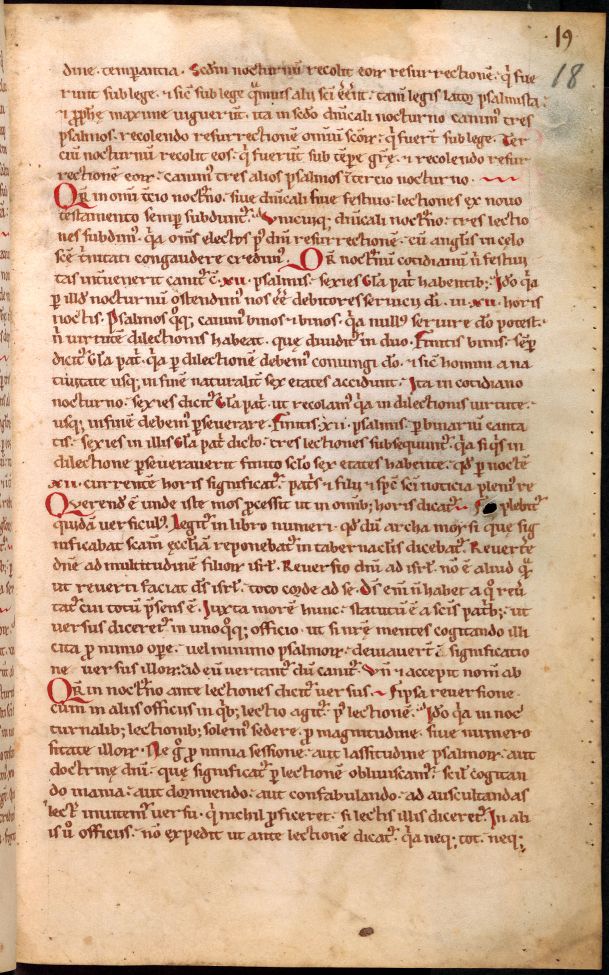 19
18
dine. temperantia. Scdm nocturnū recolit eoꝝ resurrectionē. q̇ fue
runt sub lege. ⁊ sic̄ sub lege alii sc̄i tam̄ legis lator psalmista
⁊ ꝓph̄e maxime viguerunt. ita in scdo dn̄icali nocturno canim᷒ tres
psalmos. recolendo resurrectionē omniū sc̄oꝝ. q̇ fuer̄t sub lege. Ter
ciū nocturnū recolit eos. q̇ fuerūt sub tēpe grē. ⁊ recolendo resur
rectionē eoꝝ. canim᷒ tres alios psalmos ī tercio nocturno.
Qꝛ in omni t̄cio noct̄no. siue dn̄icali siue festiuo. lectiones ex nouo
testamento semp̄ subdunt᷒. Vnicuiq; dn̄icali noct̄no. tres lectio
nes subdim᷒. q̇a om̄s electos p᷒ dn̄i resurrectionē. cū anglis in celo
sc̄e t̄nitati congaudere credim᷒. Qꝛ nocturnū cotidianū n̄ festiui
tas inuenerit canit᷒ c̄. xii. psalmis. sexies Gla pat̄ habentib;. Ido q̇a
p illd̄ nocturnū ostendim᷒ nos eē debitores seruicii di. in. xii. horis
noctis. Psalmos q̊q;. canim᷒ binos ⁊ binos. q̇a null᷒ seruire do potest.
n̄ uirtutē dilectionis habeat. que diuidit᷒ in duo. Finitis binis. sēp
dicit᷒ Gla pat̄. q̇a p dilectionē debem᷒ coniungi do. ⁊ sic̄ homini a na
tiuitate usq; in finē naturalit̄ sex etates accidunt. Ita in cotidiano
nocturno. sexies dicit᷒ Gla pat̄. ut recolam᷒ q̇a in dilectionis uirtute.
usq; in finem debem᷒ pseuerare. Finitis. xii. psalmis. p binariū canta
tis. sexies in illis Gla pat̄ dicto. tres lectiones subsequunt᷒. q̇a si q̇s in
dilectione pseuerauerit finito sclo sex etates habente. qd̄ p noctē
xii. currentē horis significat᷒. pat̄s ⁊ filii ⁊ sp̄c sc̄i noticia plenit᷒ re
Querend᷒ ē unde iste mos ꝓcessit ut in omib; horis dicat᷒ plebit᷒
quidā uersicul᷒. Legit᷒ in libro numeri. qd̄ dū archa moysi que sig
nificabat sc̄am eccl̄iā reponebat᷒ in tabernaclis dicebat᷒. Reuert̄e
dn̄e ad multitudinē filioꝝ isrl̄. Reuersio dn̄i ad isrl̄. nō ē aliud
ut reuerti faciat ds̄ isrl̄. toto corde ad se. Ds̄ em̄ n̄ habet a q̊ reū
tat᷒ cui totū p̄sens ē. Iuxta morē hunc. statutū ē a sc̄is pat̄b;. ut
uersus diceret᷒ in unoq̊q; officio. ut si nr̄e mentes cogitando illi
cita p nimio ope. uel minimo psalmoꝝ. deuiauert̄ a significatio
ne uersus illoꝝ. ad eū uertant᷒ dū canit᷒. Vn̄ ⁊ accepit nom̄ ab
Qꝛ in noct̄no ante lectiones dicit᷒ uersus. ipsa reuersione.
cum in aliis officiis in q̇b; lectio agit᷒. p᷒ lectionē. Ido q̇a in noc
turnalib; lectionib; solem᷒ sedere. p magnitudine. siue numero
sitate illoꝝ. Ne g̊ p nimia sessione. aut lassitudine psalmoꝝ. aut
doctrinę dn̄i. quę significat᷒ p lectionē obliuiscam᷒. scil̄ cogitan
do inania. aut dormiendo. aut confabulando. ad auscultandas
lect̄es inuitem᷒ uersu. q̇ nichil ꝓficeret. si lectis illis diceret᷒. In ali
is ū officiis. nō expedit ut ante lectionē dicat᷒. q̇a neq;. tot. neq;.